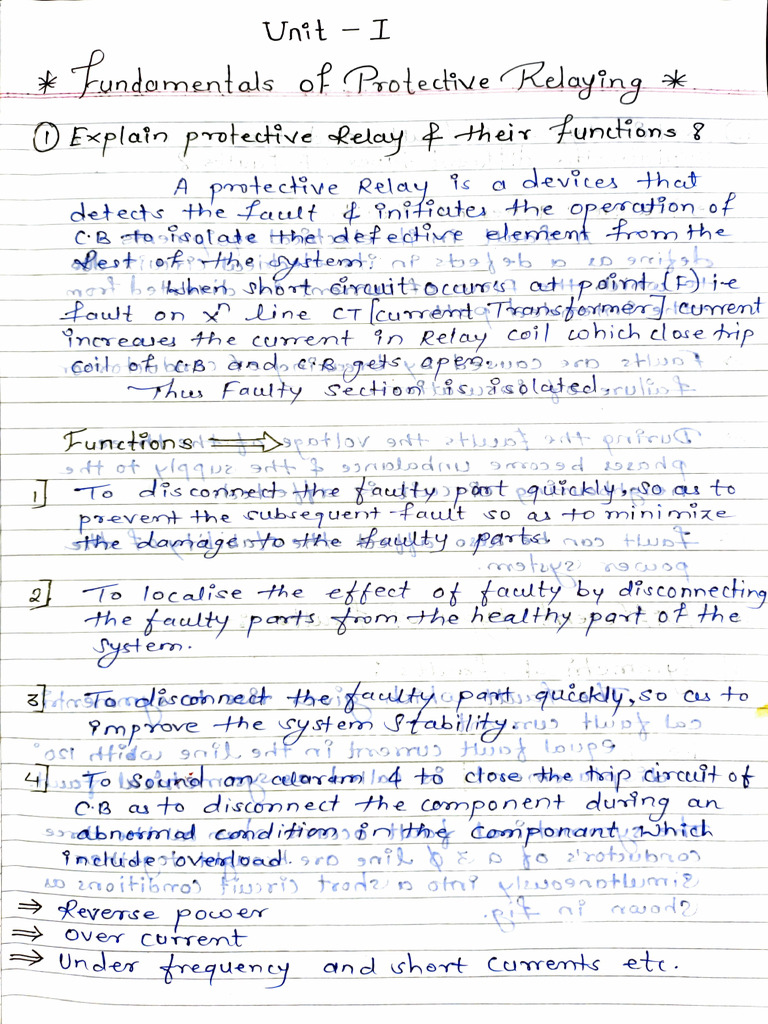 Unit - I
* Fundamentals of Protective Relaying *
① Explain protective Relay & their functions :
A protective Relay is a devices that
detects the fault & initiates the operation of
C.B to isolate the defective element from the
Rest of the system.
When short circuit occurs at point (F) i.e
fault on xⁿ line CT [current Transformer] current
increases the current in Relay coil which close trip
coil of CB and C.B gets open.
Thus Faulty section is isolated.
Functions ⟹
1] To disconnect the faulty part quickly, so as to
prevent the subsequent fault so as to minimize
the damage to the faulty parts.
2] To localise the effect of faulty by disconnecting
the faulty parts from the healthy part of the
system.
3] To disconnect the faulty part quickly, so as to
improve the system stability.
4] To sound an alaram & to close the trip circuit of
C.B as to disconnect the component during an
abnormal condition in the componant which
include overload.
⇒ Reverse power
⇒ over current
⇒ Under frequency and short currents etc.